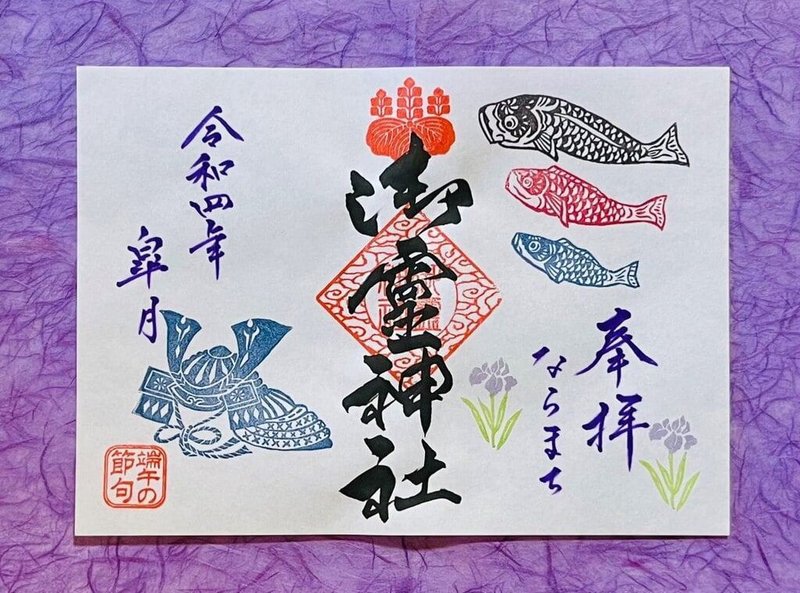 奉拝
ならまち
御靈神社
令和四年
皐月
端午の
節句